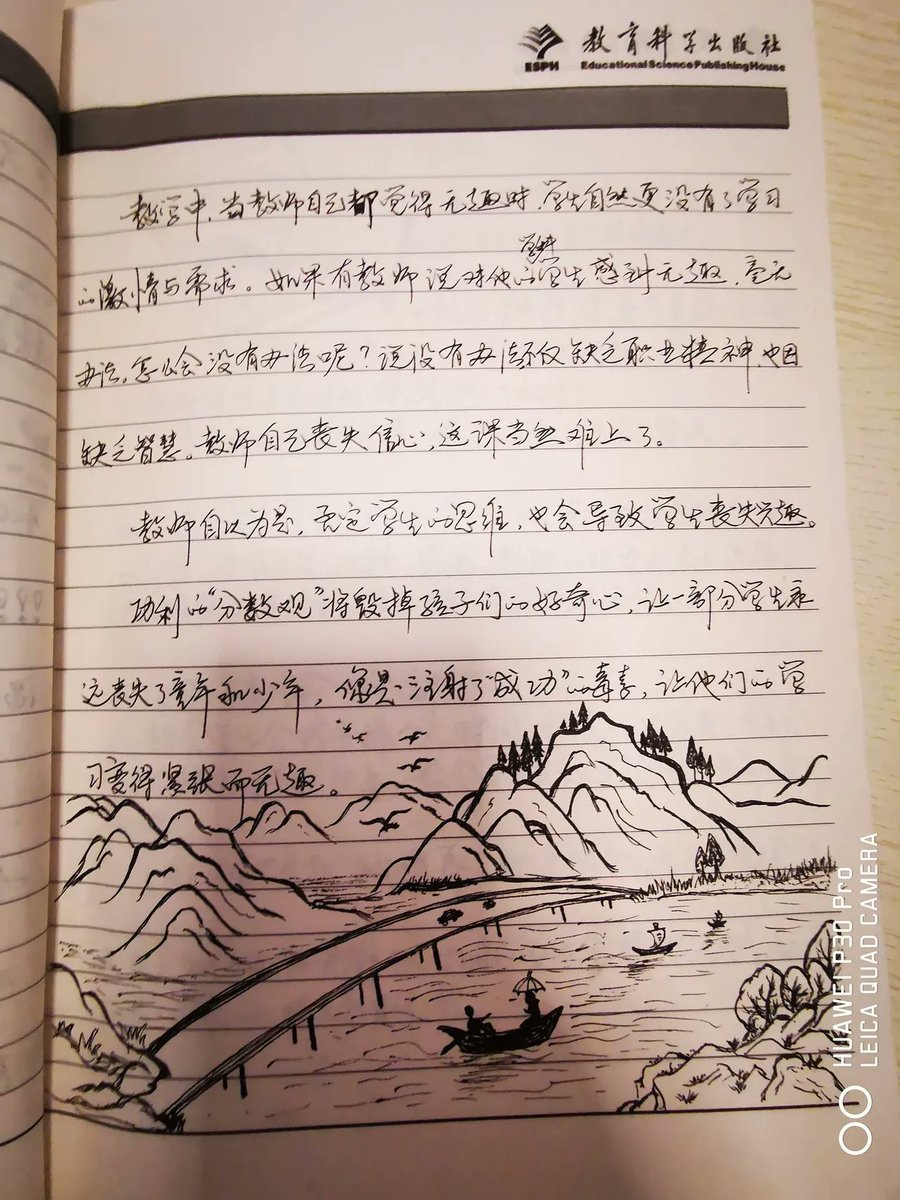 教育科学出版社
ESPH
Educational Science Publishing House
教学中,当教师自己都觉得无趣时,学生自然更没有了学习
的激情与需求。如果有教师说对他的学生感到无趣,毫无
办法,怎么会没有办法呢?说没有办法不仅缺乏职业精神,也因
缺乏智慧。教师自己丧失信心,这课当然难上了。
教师自以为是,否定学生的思维,也会导致学生丧失兴趣。
功利的“分数观”将毁掉孩子们的好奇心,让一部分学生永
远丧失了童年和少年,像是注射了“成功”的毒素,让他们的学
习变得紧张而无趣。
HUAWEI P30 Pro
LEICA QUAD CAMERA